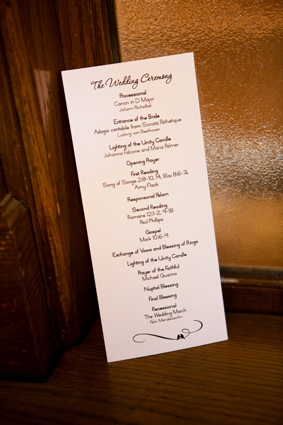 The Wedding Ceremony
Processional
Canon in D Major
Johann Pachelbel
Entrance of the Bride
Adagio cantabile from Sonata Pathetique
Ludwig van Beethoven
Lighting of the Unity Candle
Johanna Falcone and Maria Palmer
Opening Prayer
First Reading
Song of Songs 2:8-10, 14, 16a; 8:6-7a
Amy Flack
Responsorial Psalm
Second Reading
Romans 12:1-2, 9-18
Paul Phillips
Gospel
Mark 10:6-9
Exchange of Vows and Blessing of Rings
Lighting of the Unity Candle
Prayer of the Faithful
Michael
Nuptial Blessing
Final Blessing
Recessional
The Wedding March
Felix Mendelssohn